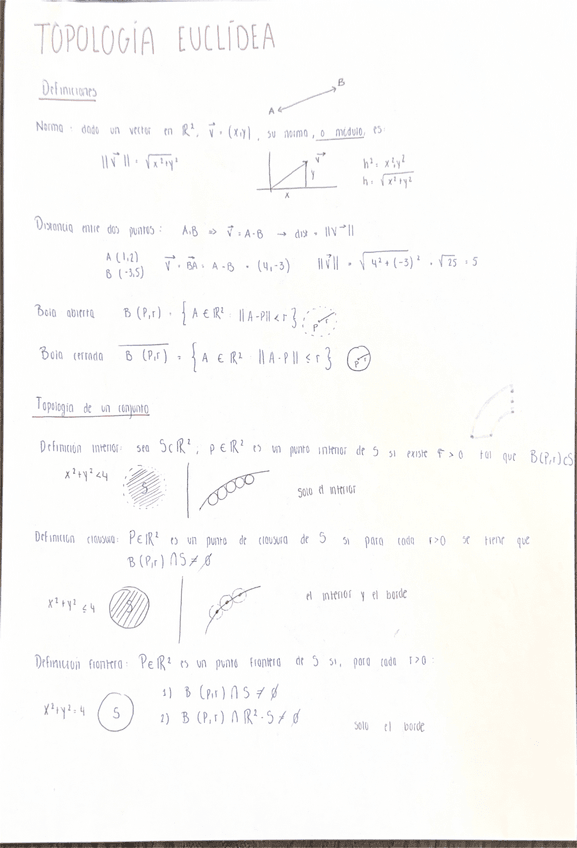 TOPOLOGÍA EUCLÍDEA
Definiciones
A B
Norma: dado un vector en ℝ², v⃗ = (x,y), su norma, o módulo, es:
||v⃗|| = √x²+y²
v⃗
y
x
h² = x²+y²
h = √x²+y²
Distancia entre dos puntos: A,B => v⃗ = A-B → dist = ||v⃗||
A (1,2)
B (-3,5)
v⃗ = BA⃗ = A-B = (4,-3) ||v⃗|| = √4²+(-3)² = √25 = 5
Bola abierta B (P,r) = { A ∈ ℝ² : ||A-P|| < r } P r
Bola cerrada B̅ (P,r) = { A ∈ ℝ² ||A-P|| ≤ r } P r
Topología de un conjunto
Definición interior: sea S⊂ℝ², p∈ℝ² es un punto interior de S si existe r>0 tal que B(P,r)⊂S
x²+y²<4 S solo el interior
Definición clausura: P∈ℝ² es un punto de clausura de S si para cada r>0 se tiene que
B (P,r) ∩ S ≠ ∅
x²+y² ≤4 S el interior y el borde
Definición frontera: P∈ℝ² es un punto frontera de S si, para cada r>0:
1) B (P,r) ∩ S ≠ ∅
x²+y²=4 S 2) B (P,r) ∩ ℝ²-S ≠ ∅
solo el borde